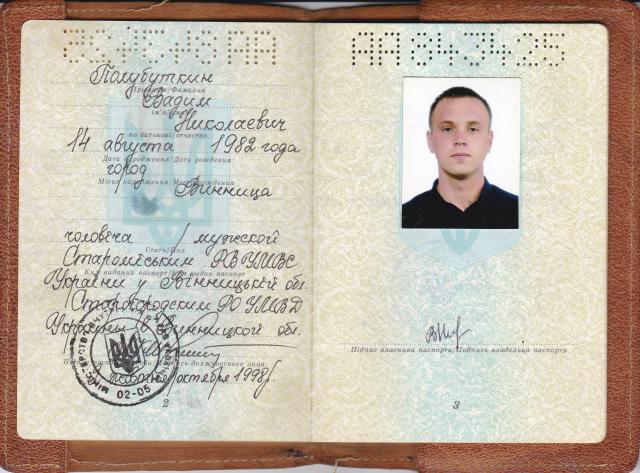 АА 843425
Полубуткин
Прізвище/Фамилия
Вадим
ім'я/имя
Николаевич
по батькові/отчество
14 августа 1982 года
Дата народження/Дата рождения
город
Місце народження/Место рождения
Винница
чоловіча / мужской
Стать/Пол
Староміським РВ УМВС
Ким виданий паспорт/Кем выдан паспорт
України у Вінницькій обл.
/Старогородским РО УМВД
Украины в Винницкой обл.
октября 1998
02-05
2
Підпис власника паспорта/Подпись владельца паспорта
3